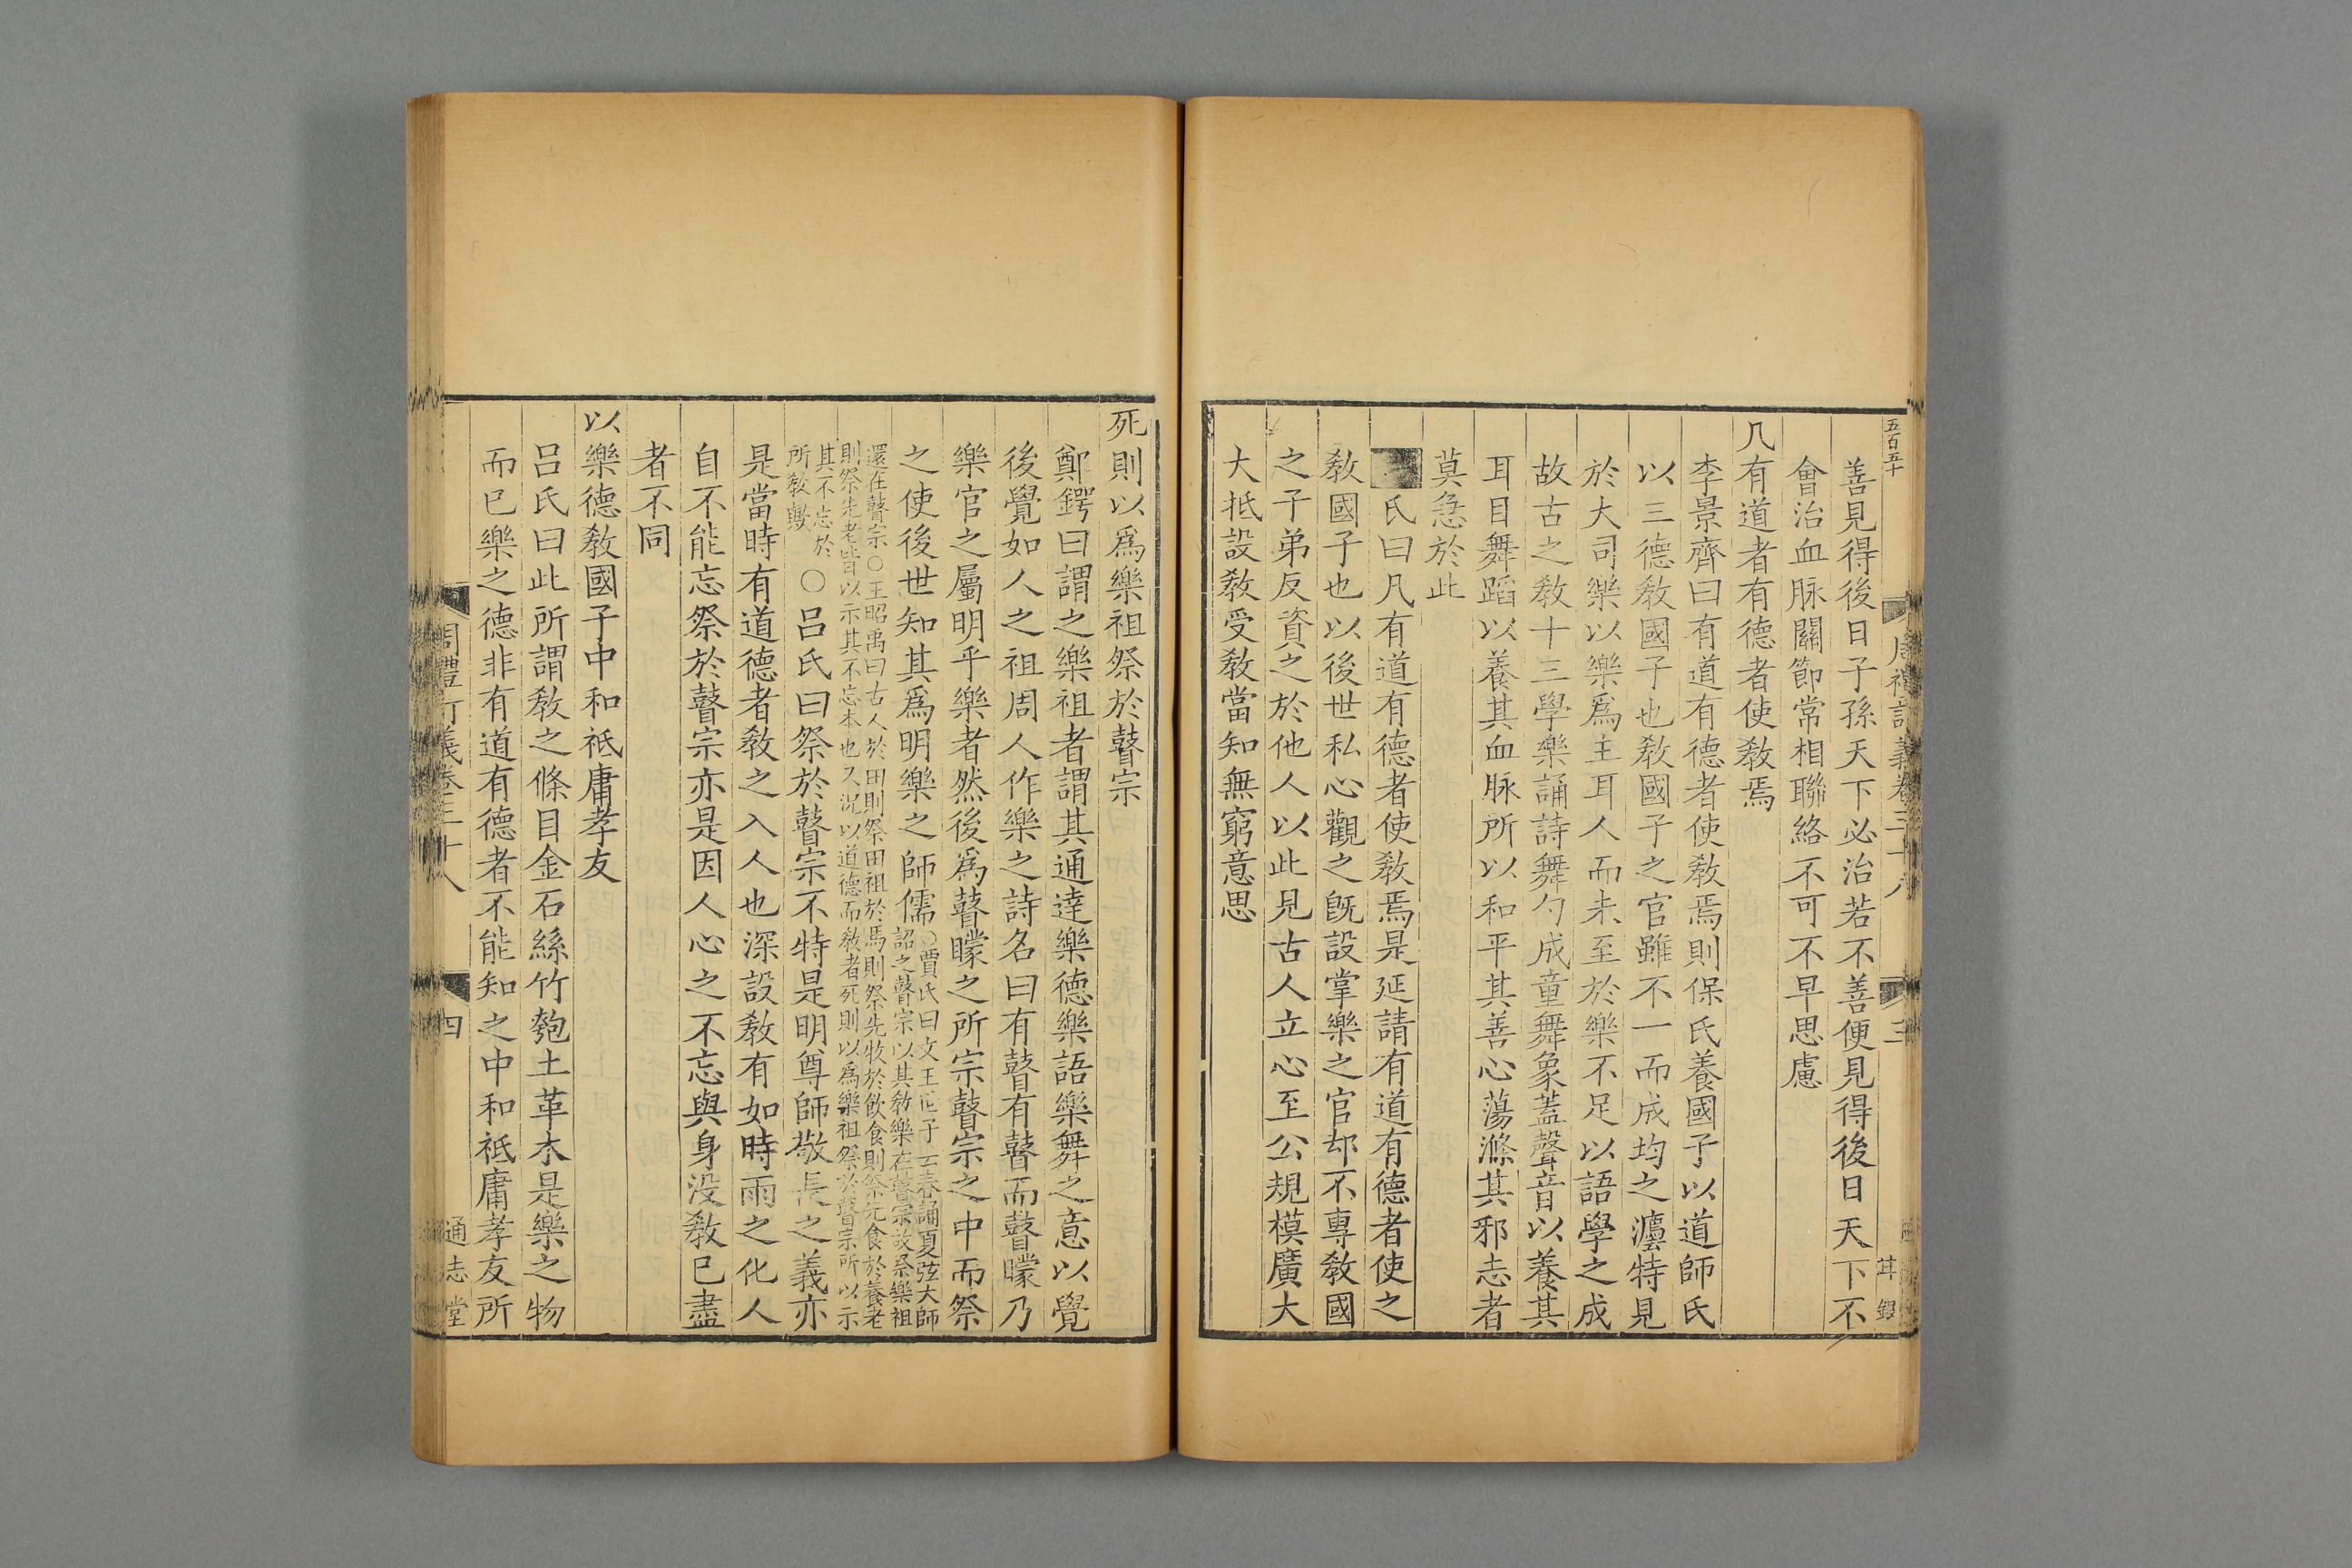 五百五十
善見得後日子孫天下必治若不善便見得後日天下不
會治血脉關節常相聯絡不可不早思慮
凡有道者有德者使敎焉
李景齊曰有道有德者使敎焉則保氏養國子以道師氏
以三德敎國子也敎國子之官雖不一而成均之灋特見
於大司樂以樂爲主耳人而未至於樂不足以語學之成
故古之敎十三學樂誦詩舞勺成童舞象蓋聲音以養其
耳目舞蹈以養其血脉所以和平其善心蕩滌其邪志者
莫急於此
氏曰凡有道有德者使敎焉是延請有道有德者使之
敎國子也以後世私心觀之旣設掌樂之官却不專敎國
之子弟反資之於他人以此見古人立心至公規模廣大
大抵設敎受敎當知無窮意思
死則以爲樂祖祭於瞽宗
鄭鍔曰謂之樂祖者謂其通達樂德樂語樂舞之意以覺
後覺如人之祖周人作樂之詩名曰有瞽有瞽而瞽矇乃
樂官之屬明乎樂者然後爲瞽矇之所宗瞽宗之中而祭
之使後世知其爲明樂之師儒
○賈氏曰文王世子云春誦夏弦大師
詔之瞽宗以其敎樂在瞽宗故祭樂祖
還在瞽宗○王昭禹曰古人於田則祭田祖於馬則祭先牧於飮食則祭先食於養老
則祭先老皆以示其不忘本也又況以道德而敎者死則以爲樂祖祭於瞽宗所以示
其不忘於
所敎歟
○呂氏曰祭於瞽宗不特是明尊師敬長之義亦
是當時有道德者敎之入人也深設敎有如時雨之化人
自不能忘祭於瞽宗亦是因人心之不忘與身没敎已盡
者不同
以樂德敎國子中和祗庸孝友
呂氏曰此所謂敎之條目金石絲竹匏土革木是樂之物
而已樂之德非有道有德者不能知之中和祗庸孝友所
周禮訂義卷三十八
四
通志堂